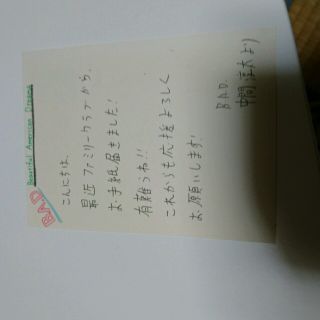 Beautiful American Dreamer
BAD
こんにちは、
最近ファミリークラブから、
お手紙届きました!
有難うね!!
これからも応援よろしく
お願いします!
B.A.D.
中間淳太より